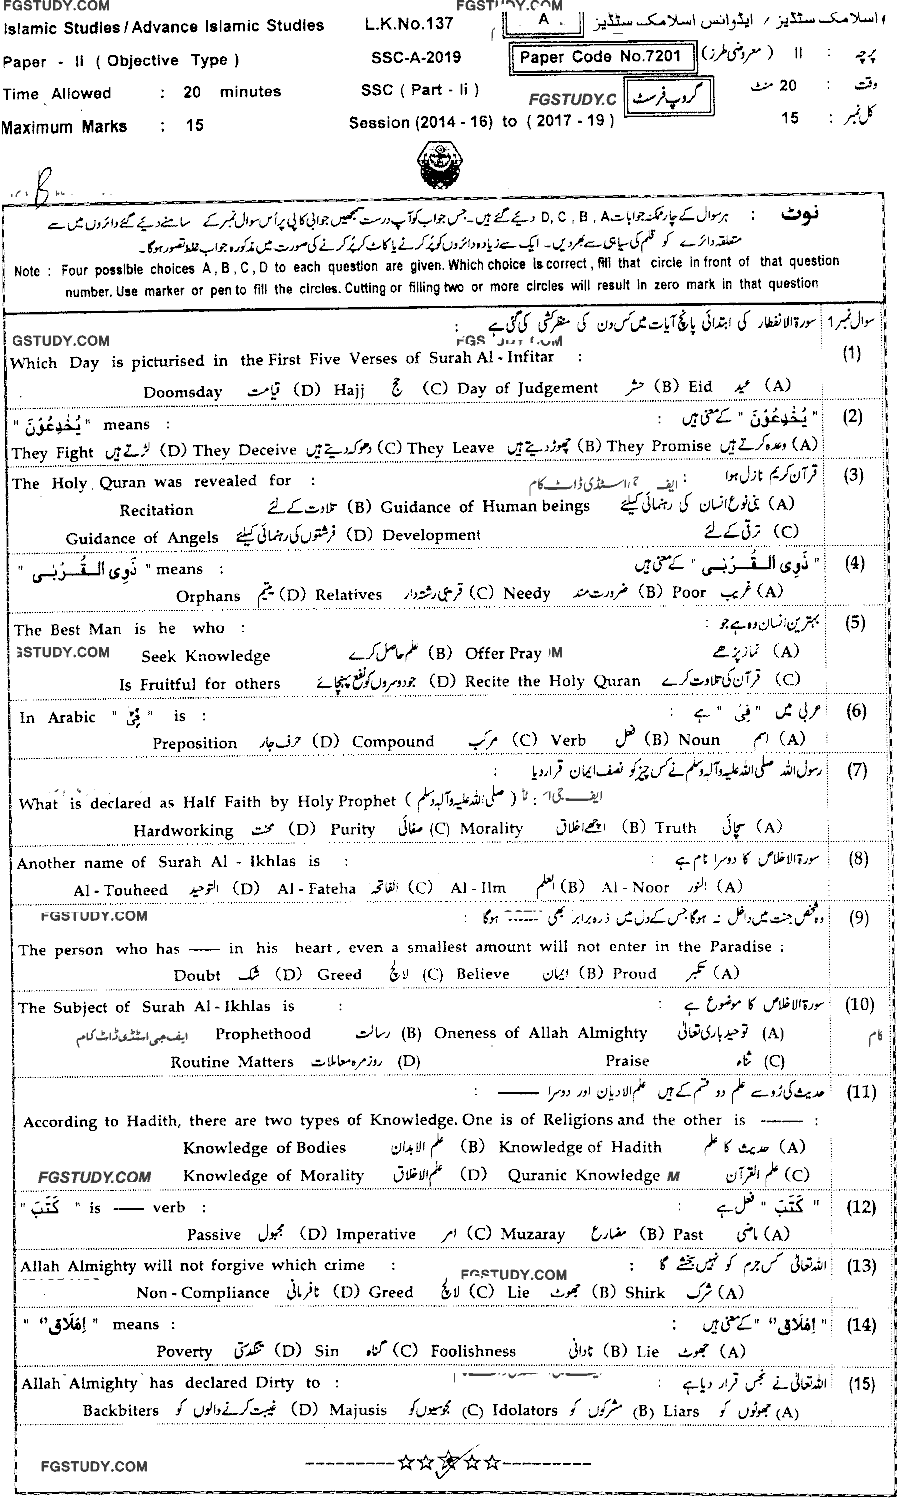 FGSTUDY.COM
FGSTUDY.COM
Islamic Studies/Advance Islamic Studies L.K.No.137 A اسلامک سٹڈیز / ایڈوانس اسلامک سٹڈیز
Paper - Ii ( Objective Type ) SSC-A-2019 Paper Code No.7201 پرچہ : II ( معروضی طرز )
Time Allowed : 20 minutes SSC ( Part - Ii ) FGSTUDY.C گروپ فرسٹ وقت : 20 منٹ
Maximum Marks : 15 Session (2014 - 16) to ( 2017 - 19 ) کل نمبر : 15
B
نوٹ : ہر سوال کے چار ممکنہ جوابات D , C , B , A دیئے گئے ہیں۔ جس جواب کو آپ درست سمجھیں جوابی کاپی پر اس سوال نمبر کے سامنے دیئے گئے دائروں میں سے
متعلقہ دائرے کو قلم کی سیاہی سے بھر دیں۔ ایک سے زیادہ دائروں کو پُر کرنے یا کاٹ کر پُر کرنے کی صورت میں مذکورہ جواب غلط تصور ہوگا۔
Note : Four possible choices A , B , C , D to each question are given. Which choice is correct , fill that circle in front of that question
number. Use marker or pen to fill the circles. Cutting or filling two or more circles will result in zero mark in that question
سوال نمبر 1 سورۃ الانفطار کی ابتدائی پانچ آیات میں کس دن کی منظر کشی کی گئی ہے :
GSTUDY.COM
(1) Which Day is picturised in the First Five Verses of Surah Al - Infitar :
Doomsday قیامت (D) Hajj حج (C) Day of Judgement حشر (B) Eid عید (A)
(2) " یُخٰدِعُوْنَ " کے معنی ہیں : " یُخٰدِعُوْنَ " means :
They Fight لڑتے ہیں (D) They Deceive دھوکہ دیتے ہیں (C) They Leave چھوڑ دیتے ہیں (B) They Promise وعدہ کرتے ہیں (A)
(3) قرآن کریم نازل ہوا : ایف جی اسٹڈی ڈاٹ کام The Holy Quran was revealed for :
Recitation تلاوت کے لئے (B) Guidance of Human beings بنی نوع انسان کی رہنمائی کیلئے (A)
Guidance of Angels فرشتوں کی رہنمائی کیلئے (D) Development ترقی کے لئے (C)
(4) " ذَوِی الْقُرْبٰی " کے معنی ہیں : " ذَوِی الْقُرْبٰی " means :
Orphans یتیم (D) Relatives قریبی رشتہ دار (C) Needy ضرورت مند (B) Poor غریب (A)
(5) بہترین انسان وہ ہے جو : The Best Man is he who :
GSTUDY.COM Seek Knowledge علم حاصل کرے (B) Offer Pray M نماز پڑھے (A)
Is Fruitful for others جو دوسروں کو نفع پہنچائے (D) Recite the Holy Quran قرآن کی تلاوت کرے (C)
(6) عربی میں " فِیْ " ہے : In Arabic " فِیْ " is :
Preposition حرف جار (D) Compound مرکب (C) Verb فعل (B) Noun اسم (A)
(7) رسول اللہ صلی اللہ علیہ وآلہ وسلم نے کس چیز کو نصف ایمان قرار دیا :
What is declared as Half Faith by Holy Prophet ( صلی اللہ علیہ وآلہ وسلم ) :
Hardworking محنت (D) Purity صفائی (C) Morality اچھے اخلاق (B) Truth سچائی (A)
(8) سورۃ الاخلاص کا دوسرا نام ہے : Another name of Surah Al - Ikhlas is :
Al - Touheed التوحید (D) Al - Fateha الفاتحہ (C) Al - Ilm العلم (B) Al - Noor النور (A)
(9) وہ شخص جنت میں داخل نہ ہوگا جس کے دل میں ذرہ برابر بھی ------ ہوگا : FGSTUDY.COM
The person who has —— in his heart , even a smallest amount will not enter in the Paradise :
Doubt شک (D) Greed لالچ (C) Believe ایمان (B) Proud تکبر (A)
(10) سورۃ الاخلاص کا موضوع ہے : The Subject of Surah Al - Ikhlas is :
ایف جی اسٹڈی ڈاٹ کام Prophethood رسالت (B) Oneness of Allah Almighty توحید باری تعالیٰ (A) کام
Routine Matters روز مرہ معاملات (D) Praise ثناء (C)
(11) حدیث کی رُو سے علم دو قسم کے ہیں علم الادیان اور دوسرا —— :
According to Hadith, there are two types of Knowledge. One is of Religions and the other is —— :
Knowledge of Bodies علم الابدان (B) Knowledge of Hadith حدیث کا علم (A)
FGSTUDY.COM Knowledge of Morality علم الاخلاق (D) Quranic Knowledge M علم القرآن (C)
(12) " کَتَبَ " فعل ہے : " کَتَبَ " is —— verb :
Passive مجہول (D) Imperative امر (C) Muzaray مضارع (B) Past ماضی (A)
(13) اللہ تعالیٰ کس جرم کو نہیں بخشے گا : Allah Almighty will not forgive which crime :
FGSTUDY.COM
Non - Compliance نافرمانی (D) Greed لالچ (C) Lie جھوٹ (B) Shirk شرک (A)
(14) " اِمْلَاقٍ " کے معنی ہیں : " اِمْلَاقٍ " means :
Poverty تنگدستی (D) Sin گناہ (C) Foolishness نادانی (B) Lie جھوٹ (A)
(15) اللہ تعالیٰ نے نجس قرار دیا ہے : Allah Almighty has declared Dirty to :
Backbiters غیبت کرنے والوں کو (D) Majusis مجوسیوں کو (C) Idolators مشرکوں کو (B) Liars جھوٹوں کو (A)
FGSTUDY.COM